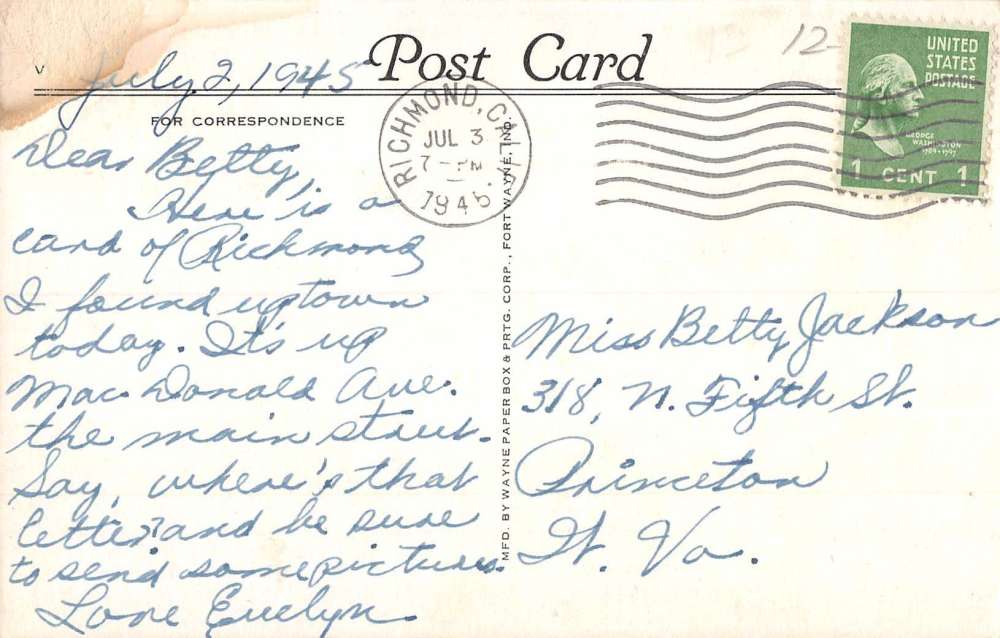 Post Card
July 2, 1945
FOR CORRESPONDENCE
Dear Betty,
Here is a
card of Richmond
I found uptown
today. It's up
Mac Donald Ave.
the main street.
Say, where's that
letter? and be sure
to send some pictures.
Love Evelyn.
RICHMOND, CALIF.
JUL 3
7 - PM
1945
MFD. BY WAYNE PAPER BOX & PRTG. CORP., FORT WAYNE, IND.
12-
UNITED
STATES
POSTAGE
GEORGE
WASHINGTON
1789-1797
1 CENT 1
Miss Betty Jackson
318, N. Fifth St.
Princeton
W. Va.